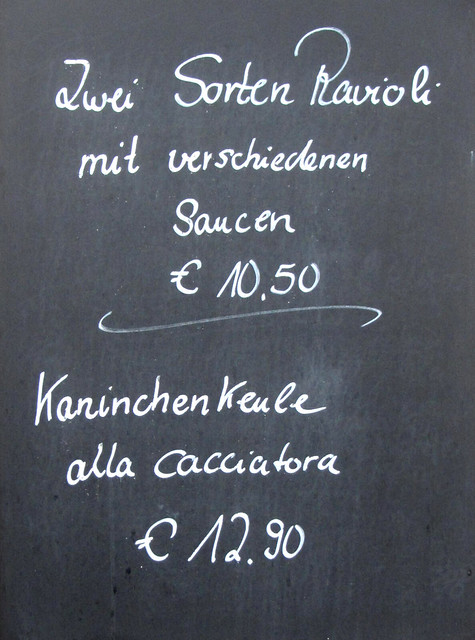 Zwei Sorten Ravioli
mit verschiedenen
Saucen
€ 10.50
Kaninchenkeule
alla cacciatora
€ 12.90